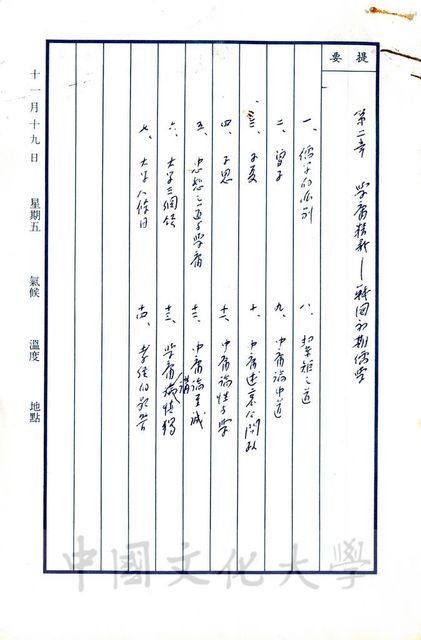 提要
第二章 學庸精 — 戰國初期儒學
一、儒学的派別
二、曾子
三、子夏
四、子思
五、忠恕之道与學庸
六、大学三綱領
七、大学八條目
八、絜矩之道
九、中庸論中道
十、中庸述哀公問政
十一、中庸論性与學
十二、中庸論至誠
十三、學庸講慎獨
十四、孝經的影響
十一月十九日 星期五 氣候 溫度 地點
中國文化大學